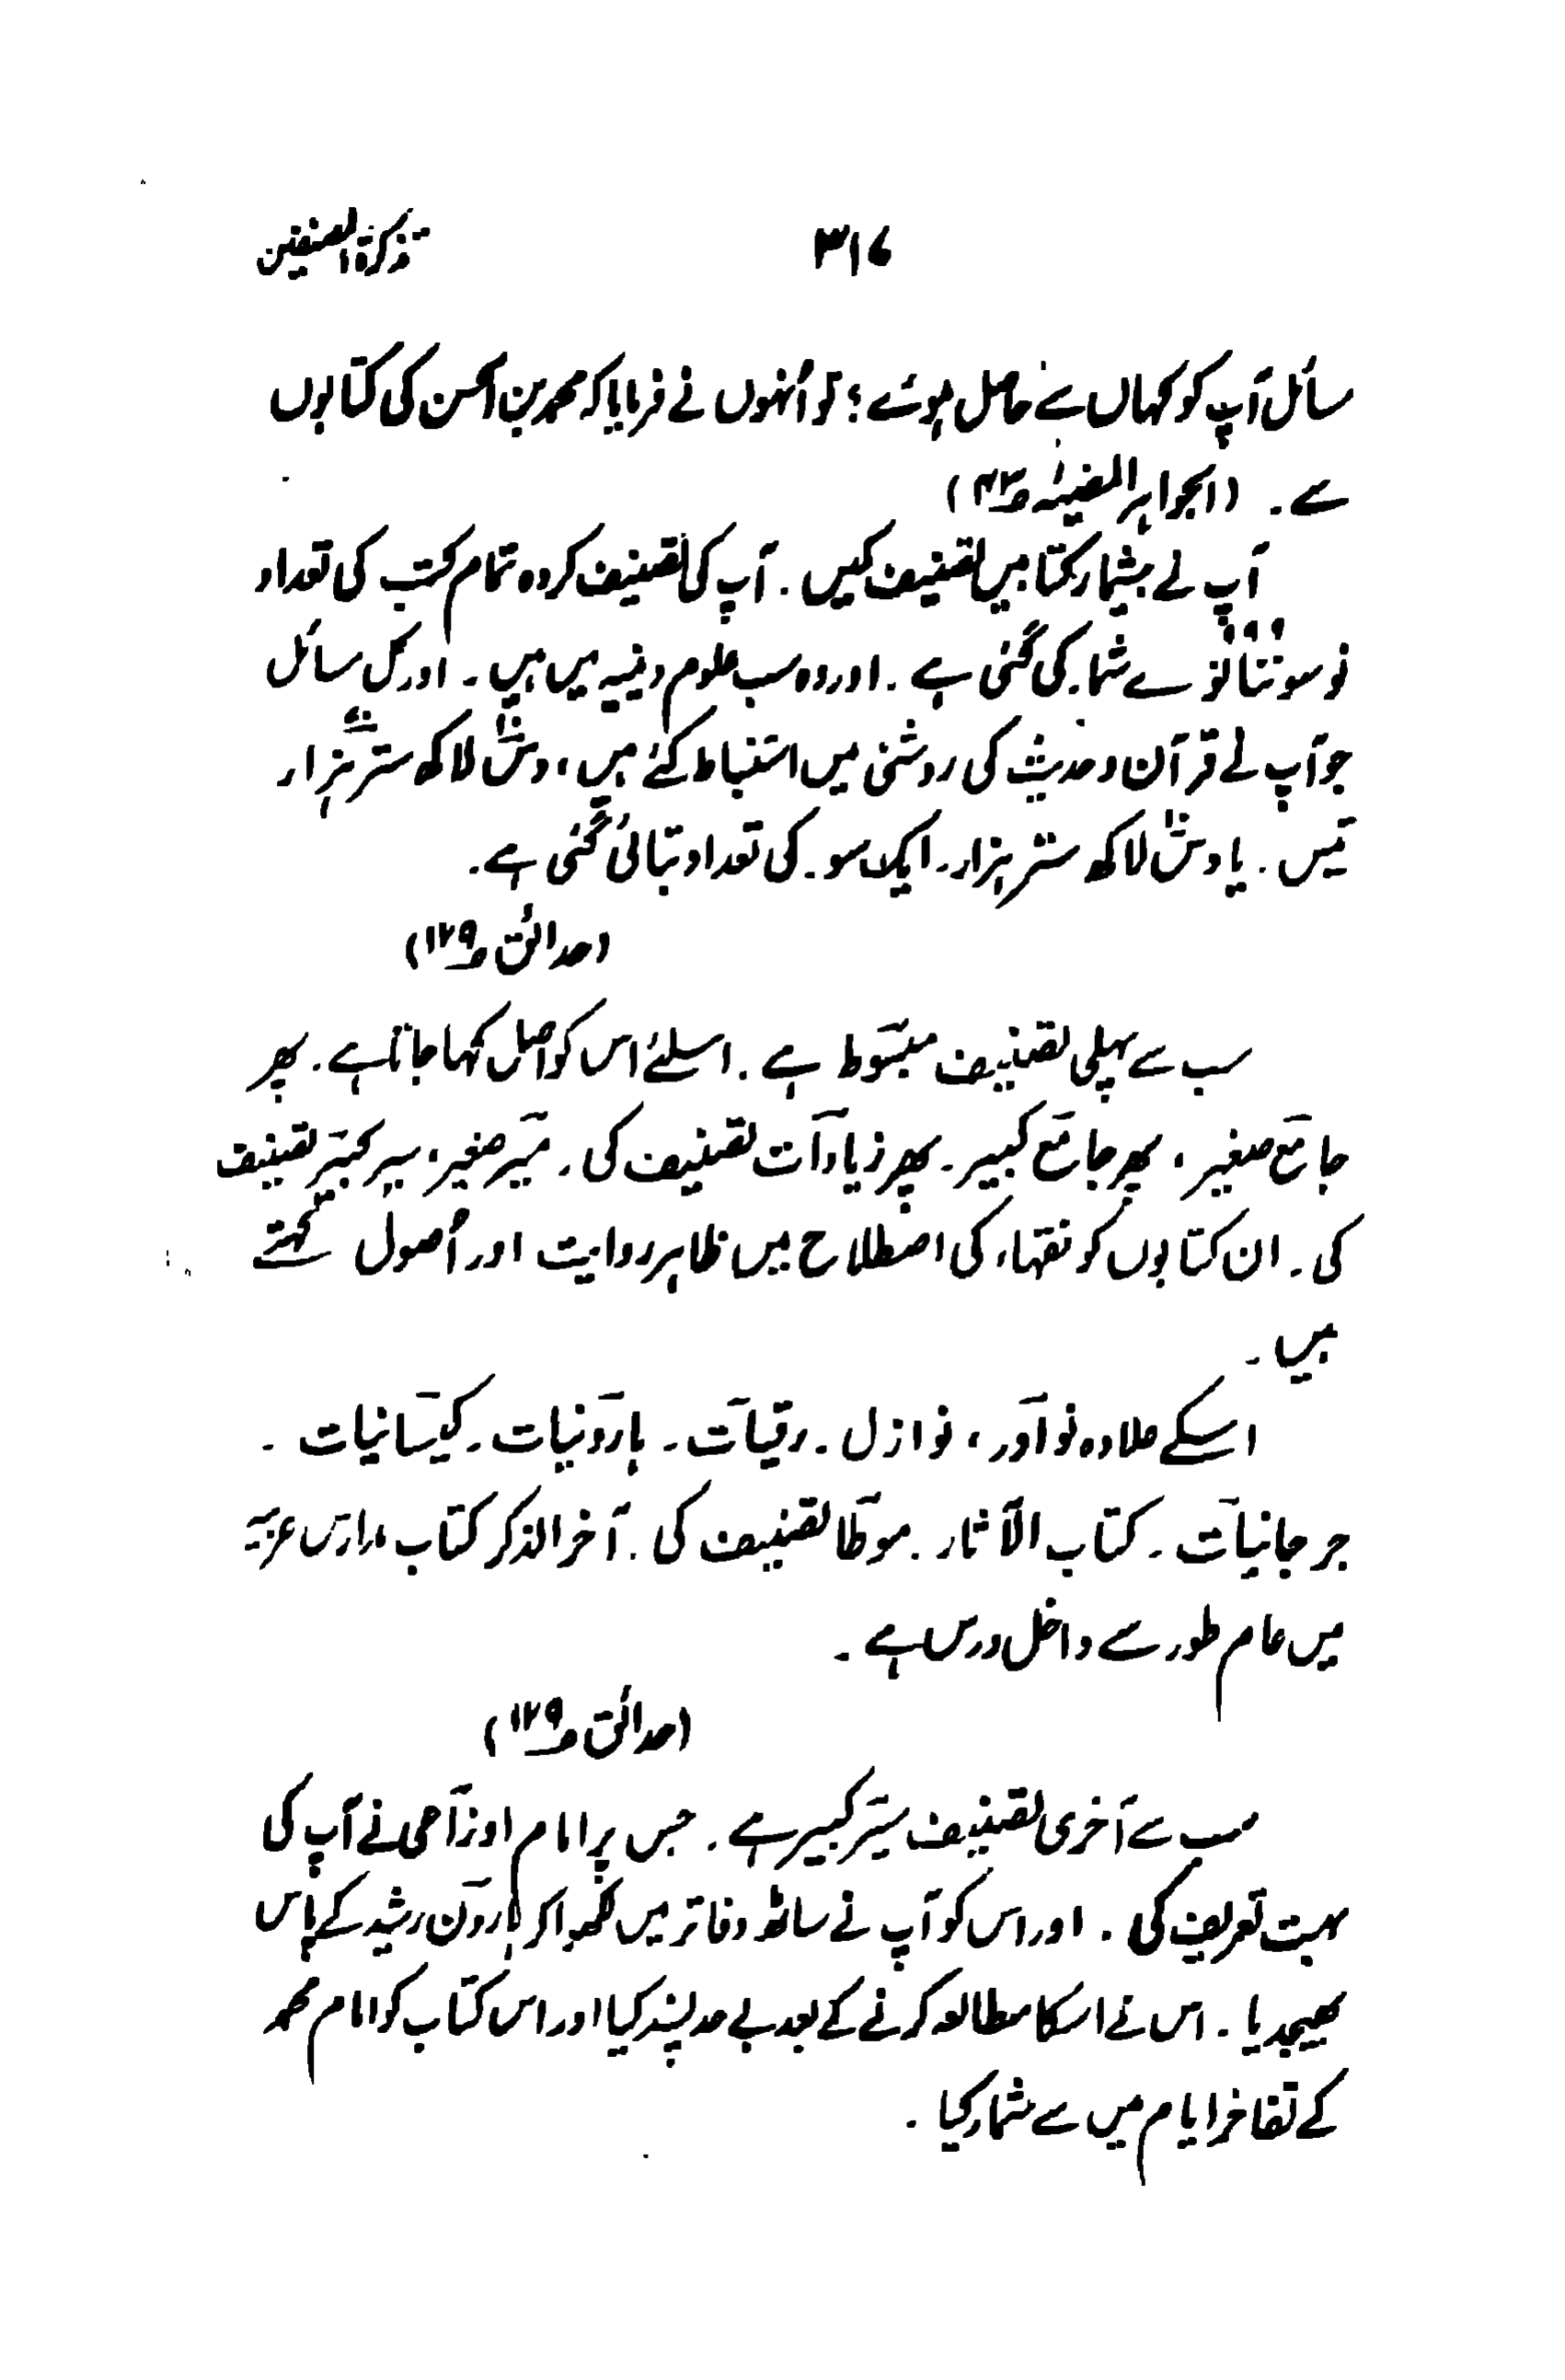 تذکرۃ المصنفین ۳۱۶
مسائل آپ کو کہاں سے حاصل ہوئے؟ تو اُنہوں نے فرمایا کہ محمد بن الحسن کی کتابوں
سے۔ (الجواہر المضیئہ
آپ نے بیشمار کتابیں تصنیف کیں۔ آپ کی تصنیف کردہ تمام کتب کی تعداد
نو سو ننانوے شمار کی گئی ہے۔ اور وہ سب علوم دینیہ میں ہیں۔ اور کل مسائل
جو آپ نے قرآن و حدیث کی روشنی میں استنباط کئے ہیں، دس لاکھ ستر ہزار
تیس۔ یا دس لاکھ ستر ہزار۔ ایک سو۔ کی تعداد بتائی گئی ہے۔
(حدائق ص۱۲۹)
سب سے پہلی تصنیف مبسوط ہے۔ اسلئے اس کو اصل کہا جاتا ہے۔ پھر
جامع صغیر، پھر جامع کبیر۔ پھر زیادات تصنیف کی۔ سیر صغیر، سیر کبیر تصنیف
کی۔ ان کتابوں کو فقہاء کی اصطلاح میں ظاہر روایت اور اُصول کہتے
ہیں۔
اسکے علاوہ نوادر، نوازل۔ رقیات۔ ہارونیات۔ کیسانیات۔
جرجانیات۔ کتاب الآثار۔ موطا تصنیف کی۔ آخر الذکر کتاب مدارس عربیہ
میں عام طور سے داخل درس ہے۔
(حدائق ص۱۲۹)
سب سے آخری تصنیف سیر کبیر ہے۔ جس پر امام اوزاعی نے آپ کی
بہت تعریف کی۔ اور اس کو آپ نے ساٹھ دفاتر میں لکھوا کر ہارون رشید کے پاس
بھیجدیا۔ اس نے اسکا مطالعہ کرنے کے بعد بے حد پسند کیا اور اس کتاب کو امام محمد
کے تفاخر ایام میں سے شمار کیا۔